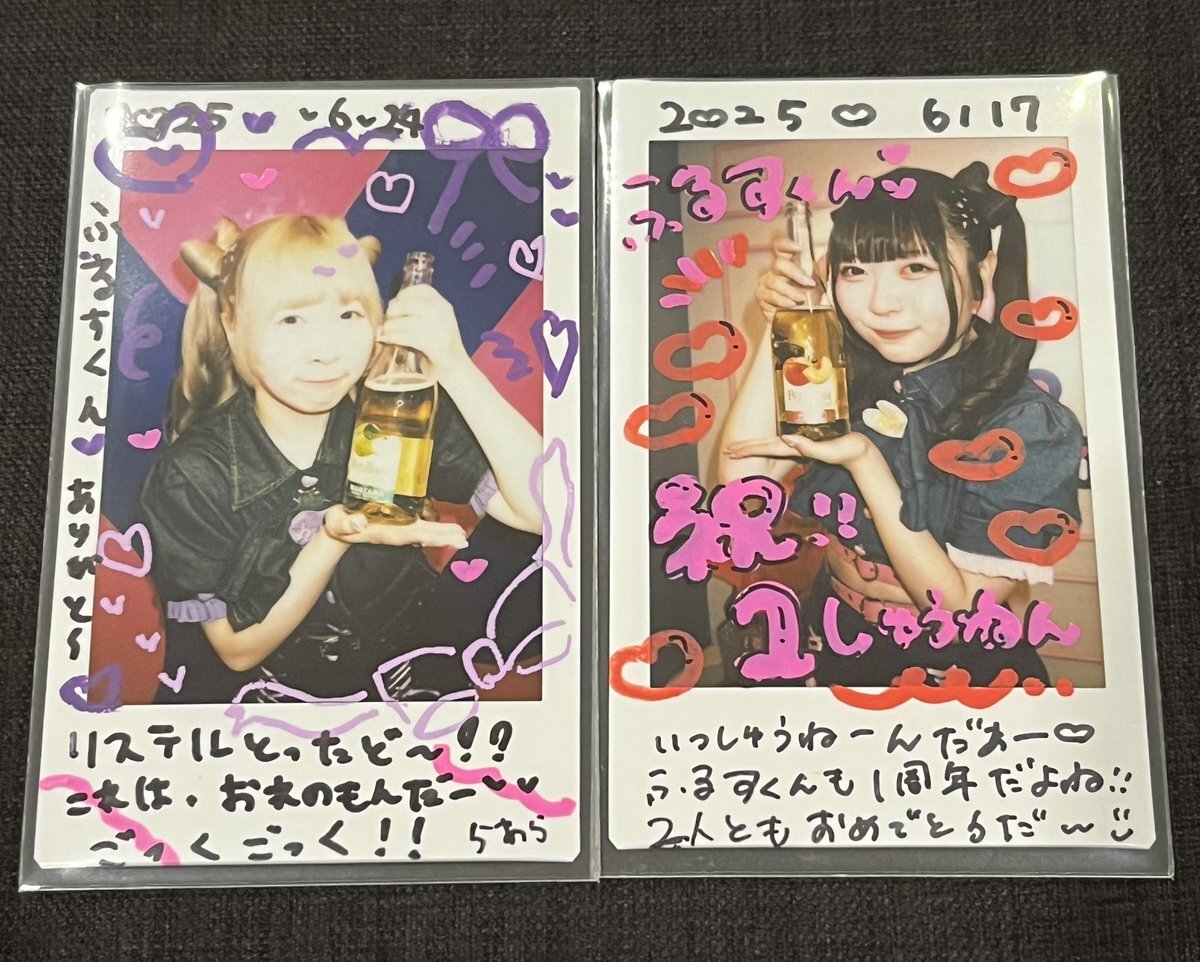 2025 6 24
ふるすくん ありがと〜
リステルとったど〜!?
これは、おれのもんだー
ごっくごっく!!
らあら
2025 6/17
ふるすくん
祝!!
1しゅうねん
いっしゅうねーんだおー♡
ふるすくんも1周年だよね!!
2人ともおめでとうだ〜